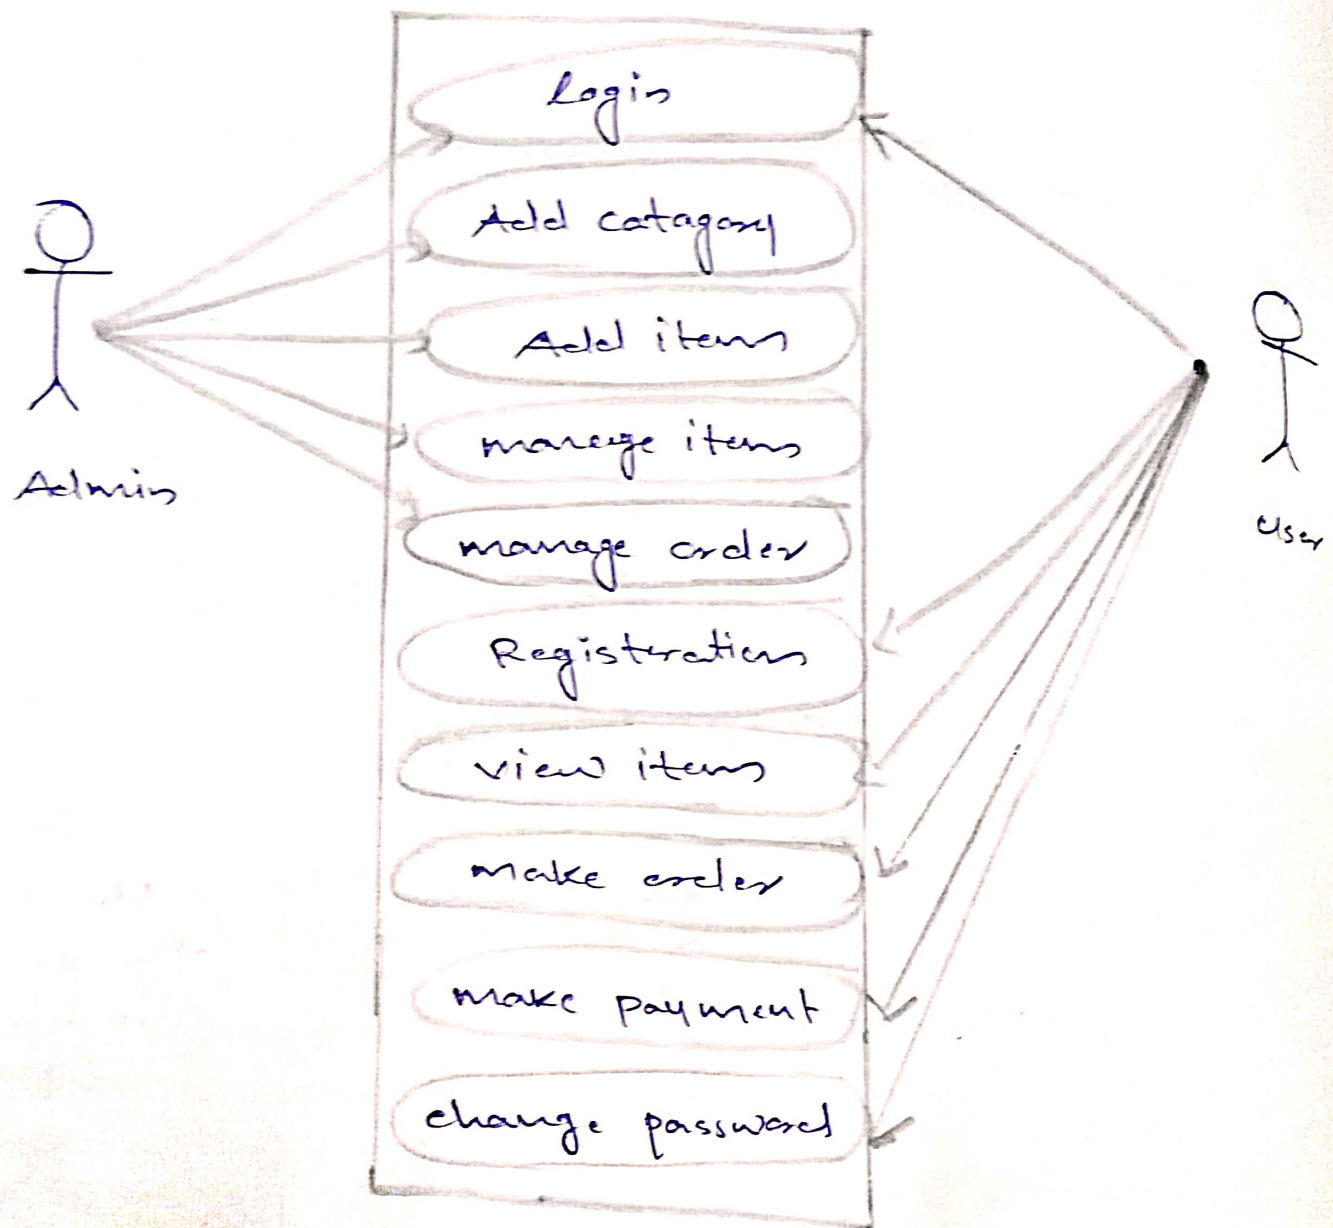 Login
Add catagory
Add items
manage items
Admin
manage order
User
Registeration
view items
make order
make payment
change password